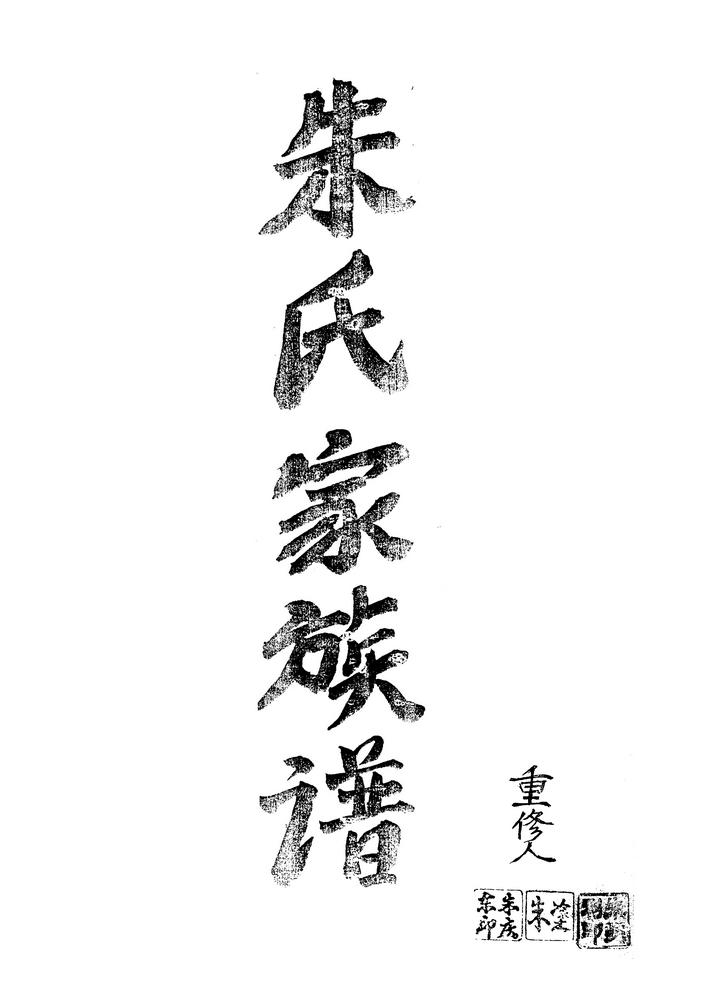 朱氏家族谱
重修人
朱庆东印
朱